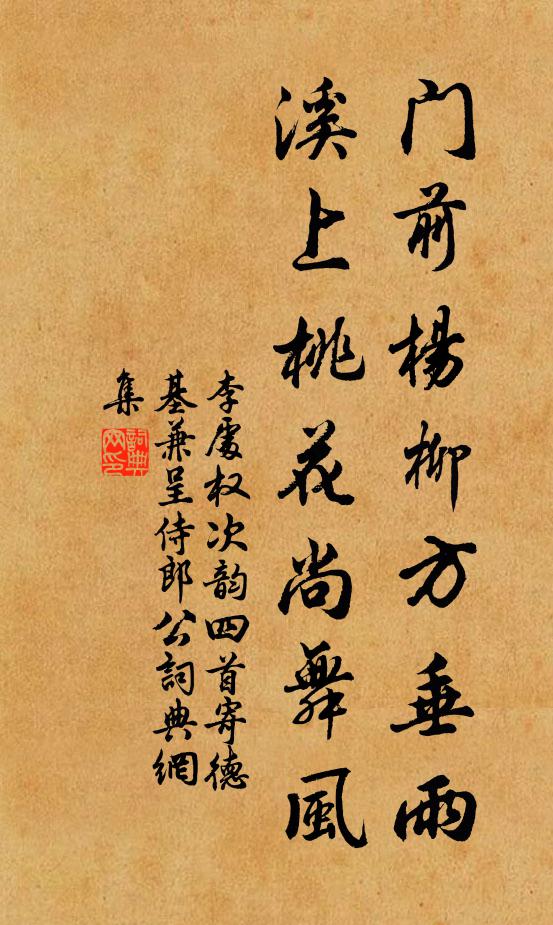 门前楊柳方垂雨
溪上桃花尚舞風
李處权次韵四首寄德
基兼呈侍郎公詞典網
集
詞典
网印